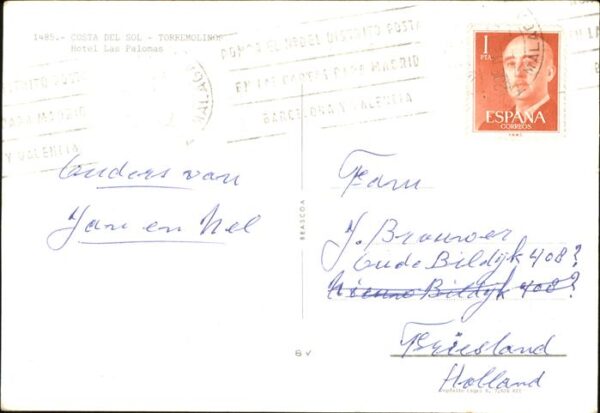 1485.- COSTA DEL SOL - TORREMOLINOS
Hotel Las Palomas
PONGA EL Nº DEL DISTRITO POSTAL
EN LAS CARTAS PARA MADRID
BARCELONA Y VALENCIA
DISTRITO POSTA
PARA MADRID
Y VALENCIA
MALAGA
MALAG
1
PTA
ESPAÑA
CORREOS
Ouders van
Jan en Nel
BRASCOA
6
Fam
J. Brouwer
Oude Bildijk 408?
Nieuwe Bildijk 408?
Friesland
Holland